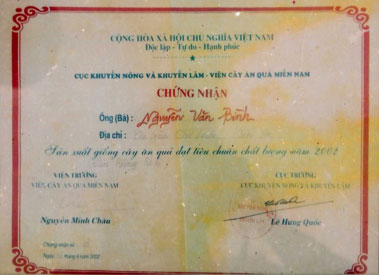 CỘNG HÒA XÃ HỘI CHỦ NGHĨA VIỆT NAM
Độc lập - Tự do - Hạnh phúc
CỤC KHUYẾN NÔNG VÀ KHUYẾN LÂM - VIỆN CÂY ĂN QUẢ MIỀN NAM
CHỨNG NHẬN
Ông (Bà) : Nguyễn Văn Bình
Địa chỉ :
Sản xuất giống cây ăn quả đạt tiêu chuẩn chất lượng năm 2002
VIỆN TRƯỞNG
VIỆN CÂY ĂN QUẢ MIỀN NAM
CỤC TRƯỞNG
CỤC KHUYẾN NÔNG VÀ KHUYẾN LÂM
Nguyễn Minh Châu
Lê Hưng Quốc
Chứng nhận số
Ngày tháng 6 năm 2002